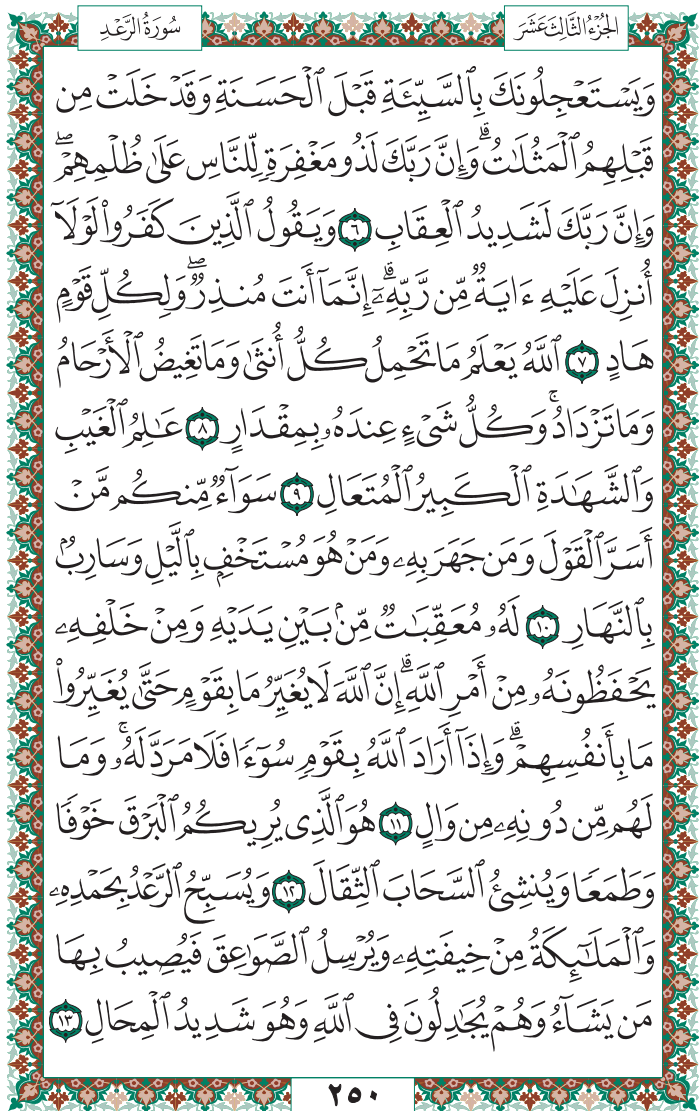 الجُزْءُ الثَّالِثَ عَشَرَ
سُورَةُ الرَّعْدِ
وَيَسْتَعْجِلُونَكَ بِٱلسَّيِّئَةِ قَبْلَ ٱلْحَسَنَةِ وَقَدْ خَلَتْ مِن
قَبْلِهِمُ ٱلْمَثُلَٰتُ ۗ وَإِنَّ رَبَّكَ لَذُو مَغْفِرَةٍ لِّلنَّاسِ عَلَىٰ ظُلْمِهِمْ ۖ
وَإِنَّ رَبَّكَ لَشَدِيدُ ٱلْعِقَابِ ٦ وَيَقُولُ ٱلَّذِينَ كَفَرُوا۟ لَوْلَآ
أُنزِلَ عَلَيْهِ ءَايَةٌ مِّن رَّبِّهِۦٓ ۗ إِنَّمَآ أَنتَ مُنذِرٌ ۖ وَلِكُلِّ قَوْمٍ
هَادٍ ٧ ٱللَّهُ يَعْلَمُ مَا تَحْمِلُ كُلُّ أُنثَىٰ وَمَا تَغِيضُ ٱلْأَرْحَامُ
وَمَا تَزْدَادُ ۚ وَكُلُّ شَىْءٍ عِندَهُۥ بِمِقْدَارٍ ٨ عَٰلِمُ ٱلْغَيْبِ
وَٱلشَّهَٰدَةِ ٱلْكَبِيرُ ٱلْمُتَعَالِ ٩ سَوَآءٌ مِّنكُم مَّنْ
أَسَرَّ ٱلْقَوْلَ وَمَن جَهَرَ بِهِۦ وَمَنْ هُوَ مُسْتَخْفٍۭ بِٱلَّيْلِ وَسَارِبٌۢ
بِٱلنَّهَارِ ١٠ لَهُۥ مُعَقِّبَٰتٌ مِّنۢ بَيْنِ يَدَيْهِ وَمِنْ خَلْفِهِۦ
يَحْفَظُونَهُۥ مِنْ أَمْرِ ٱللَّهِ ۗ إِنَّ ٱللَّهَ لَا يُغَيِّرُ مَا بِقَوْمٍ حَتَّىٰ يُغَيِّرُوا۟
مَا بِأَنفُسِهِمْ ۗ وَإِذَآ أَرَادَ ٱللَّهُ بِقَوْمٍ سُوٓءًا فَلَا مَرَدَّ لَهُۥ ۚ وَمَا
لَهُم مِّن دُونِهِۦ مِن وَالٍ ١١ هُوَ ٱلَّذِى يُرِيكُمُ ٱلْبَرْقَ خَوْفًا
وَطَمَعًا وَيُنشِئُ ٱلسَّحَابَ ٱلثِّقَالَ ١٢ وَيُسَبِّحُ ٱلرَّعْدُ بِحَمْدِهِۦ
وَٱلْمَلَٰٓئِكَةُ مِنْ خِيفَتِهِۦ وَيُرْسِلُ ٱلصَّوَٰعِقَ فَيُصِيبُ بِهَا
مَن يَشَآءُ وَهُمْ يُجَٰدِلُونَ فِى ٱللَّهِ وَهُوَ شَدِيدُ ٱلْمِحَالِ ١٣
٢٥٠